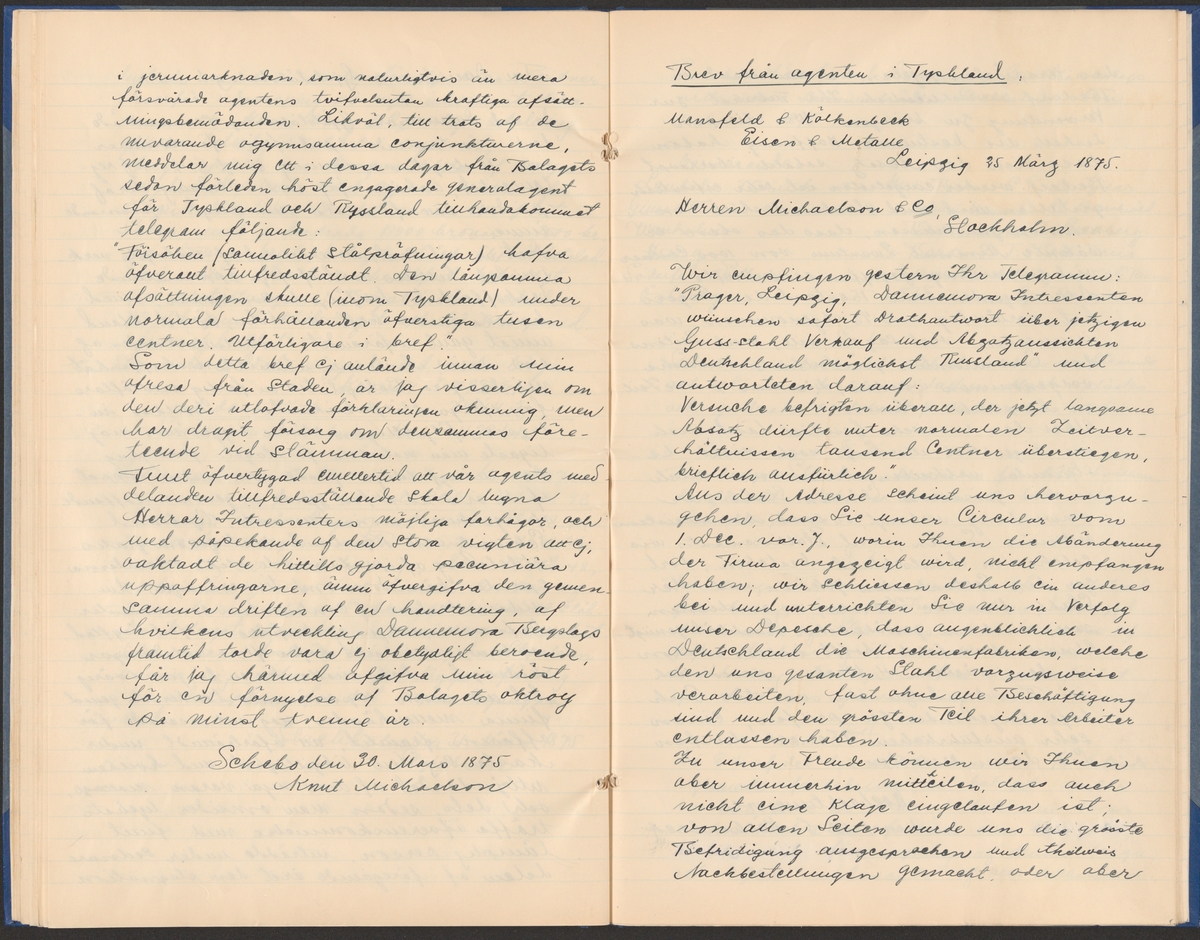 i jernmarknaden, som naturligtvis än mera
försvårade agentens tvifvelsutan kraftiga afsätt-
ningsbemödanden. Likväl, till trots af de
nuvarande ogynnsamma conjunkturerne,
meddelar mig ett i dessa dagar från Bolagets
sedan förleden höst engagerade generalagent
för Tyskland och Ryssland tillhandakommet
telegram följande:
"Försöken (Sannolikt Stålpröfningar) hafva
öfverallt tillfredsställt. Den långsamma
afsättningen skulle (inom Tyskland) under
normala förhållanden öfverstiga tusen
centner. Utförligare i bref."
Som detta bref ej anlände innan min
afresa från Staden, är jag visserligen om
den deri utlofvade förklaringen okunnig, men
har dragit försorg om densammas före-
teende vid Stämman.
Fullt öfvertygad emellertid att vår agents med
delanden tillfredsställande skola lugna
Herrar Intressenters möjliga farhågor, och
med påpekande af den stora vigten att ej,
oaktadt de hittills gjorda pecuniära
uppoffringarne, ännu öfvergifva den gemen-
samma driften af en handtering, af
hvilkens utveckling Dannemora Bergslags
framtid torde vara ej obetydligt beroende,
får jag härmed afgifva min röst
för en förnyelse af Bolagets oktroy
på minst trenne år.
Schebo den 30. Mars 1875
Knut Michaelson
Brev från agenten i Tyskland.
Mansfeld & Kölkenbeck
Eisen & Metalle
Leipzig 25 März 1875.
Herren Michaelson & Co
Stockholm.
Wir empfingen gestern Ihr Telegramm:
"Prager, Leipzig, Dannemora Intressenten
wünschen sofort Drathantwort über jetzigen
Guss-stahl Verkauf und Abzatzaussichten
Deutschland möglichst Russland" und
antworteten darauf:
Versuche befrigten überall, der jetzt langsame
Absatz dürfte unter normalen Zeitver-
hältnissen tausend Centner überstiegen,
brieflich ausfürlich".
Aus der Adresse scheint uns hervorzu-
gehen, dass Sie unser Circular vom
1. Dec. vor. J., worin Ihnen die Abänderung
der Firma angezeigt wird, nicht empfangen
haben; wir schliessen deshalb ein anderes
bei und unterrichten Sie nur in Verfolg
unser Depesche, dass augenblicklich in
Deutschland die Maschinenfabriken, welche
den uns gesanten Stahl vorzugsweise
verarbeiten, fast ohne alle Beschäftigung
sind und den grössten Teil ihrer Arbeiter
entlassen haben.
Zu unser Freude können wir Ihnen
aber immerhin mittteilen, dass auch
nicht eine Klage eingelaufen ist;
von allen Seiten wurde uns die grösste
Befridigung ausgesprochen und theilweis
Nachbestellungen gemacht, oder aber